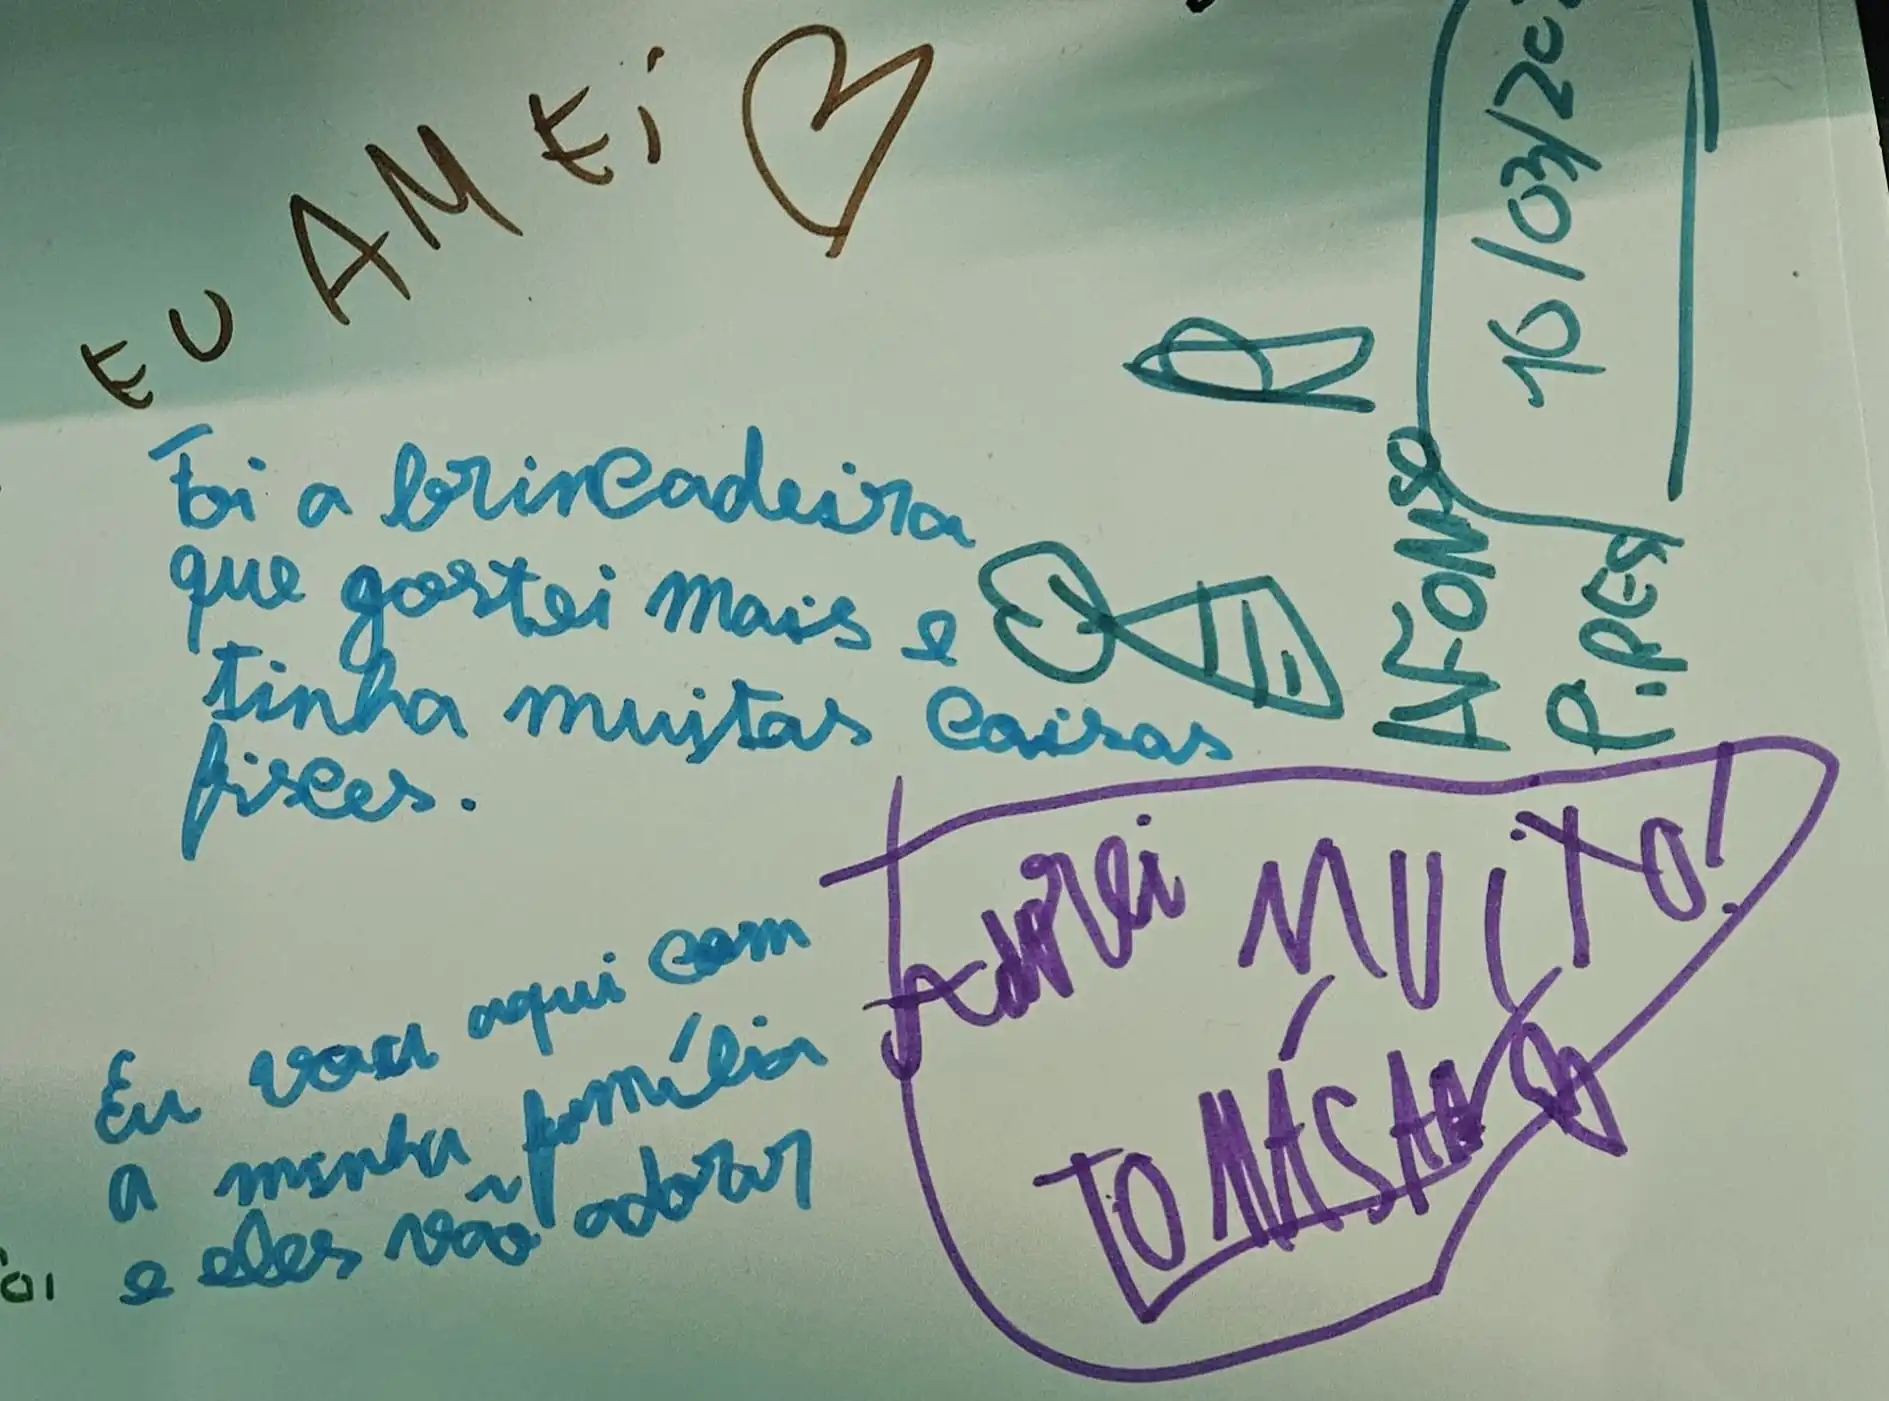 EU AMEi
Foi a brincadeira
que gostei mais e
tinha muitas coisas
fisces.
Eu vou aqui com
a minha família
e eles vão adorar
AFONSO
P.PES
10/03/20
Adorei MUiTO!
TOMÁS